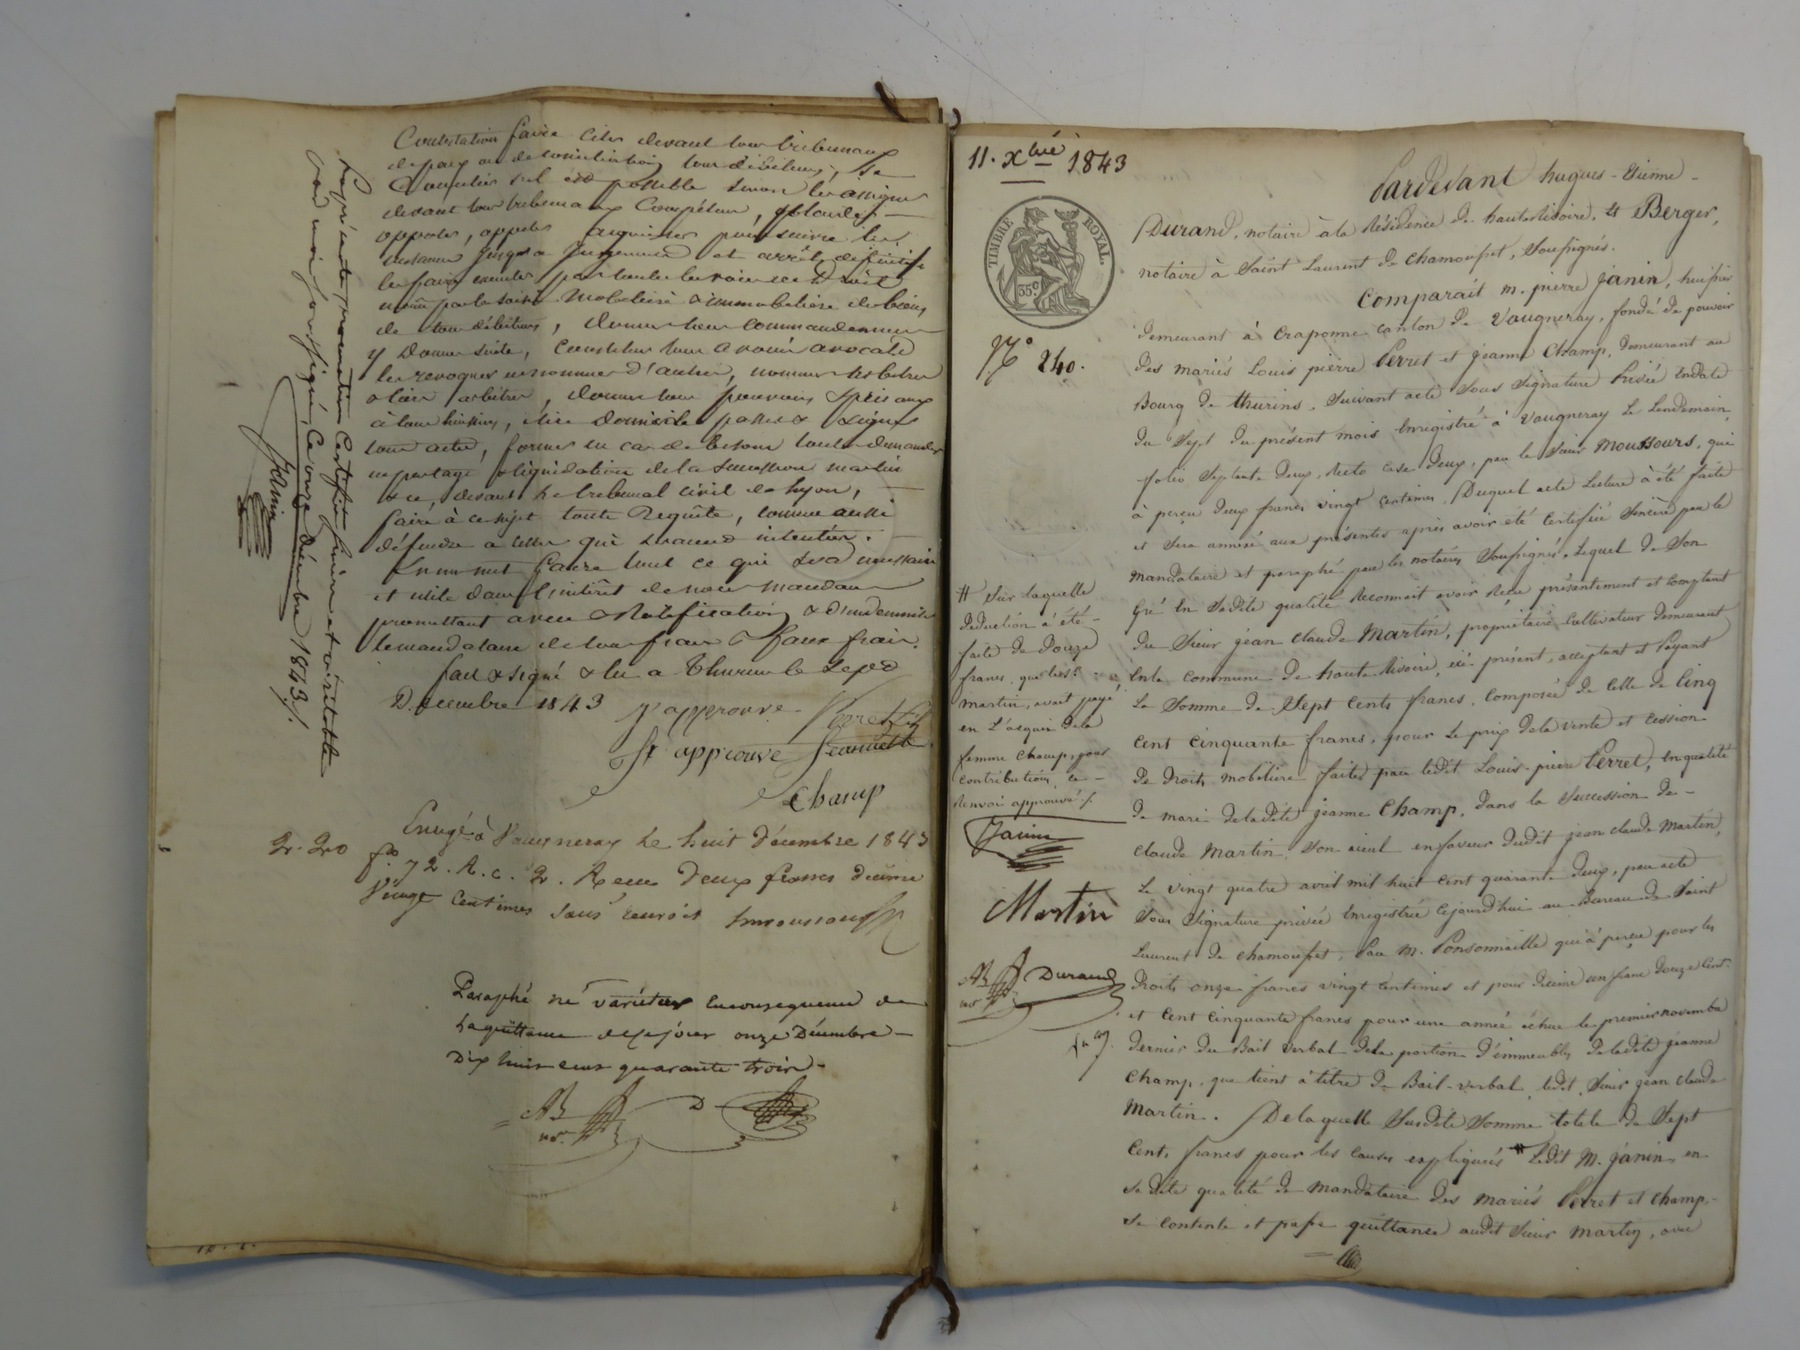 Contestation faire citer devant tous tribunaux
de paix ou de conciliation tous débiteurs, se
Concilier s'il est possible sinon les assigner
devant tous tribunaux Compétens, plaider,
opposer, appeler acquiescer poursuivre les
instances jusqu'à Jugement et arrêt définitifs
les faire exécuter par toutes les voies de droit
même par la saisie Mobilière & immobilière des biens
de tous débiteurs, donner tous commandemens
y Donner suite, Constituer tous avoués avocats
les révoquer en nommer d'autres, nommer tiers
arbitres, donner tous pouvoirs
à tous huissiers, élire Domicile passer & signer
tous actes, former en cas de besoin toute demande
en partage & liquidation de la succession martin
& ce, devant le tribunal civil de Lyon,
faire à ce sujet toute Requête, comme aussi
défendre à celles qui seraient intentées.
Enfin faire tout ce qui sera nécessaire
et utile dans l'intérêt de nous mandans
promettant aveu & Ratification & d'indemniser
le mandataire de tous frais & faux frais.
fait & signé & lu a Thurins le sept
Décembre 1843
J'approuve Perret
J'approuve Jeannette
Champ
2. 20
Enregé à Vaugneray le huit Décembre 1843
f.o 72. R. c. 2. Reçu deux francs décime
Vingt Centimes sans renvoi
Paraphé né variétur en conséquence de
la quittance de ce jour onze Décembre
Dix huit cent quarante trois
D
La présente procuration Certifiée sincère et véritable
par moi soussigné, Ce onze Décembre 1843 /.
Janin
11. Xbre 1843
TIMBRE ROYAL
35c
No 240.
Pardevant hugues-Etienne
Durand, notaire à la Résidence de hauterivoire, et Berger,
notaire à Saint Laurent de Chamousset, Soussignés.
Comparait m. pierre Janin, huissier
demeurant à Craponne canton de Vaugneray, fondé de pouvoir
des mariés Louis pierre Perret et jeanne Champ, demeurant au
Bourg de thurins, Suivant acte Sous Signature Privée en date
du Sept du présent mois Enregistré à Vaugneray le Lendemain
folio Septante Deux, Recto case Deux, par le Sieur Moussours, qui
à perçu deux francs vingt centimes, Duquel acte Lecture à été faite
et Sera annexé aux présentes après avoir été certifié Sincère par le
mandataire et paraphé par les notaires Soussignés. Lequel de Son
gré En Sadite qualité Reconnait avoir Reçu présentement et comptant
du Sieur jean Claude Martin, propriétaire cultivateur demeurant
En la Commune de haute Rivoire, ici présent, acceptant et Payant
La Somme de Sept cents francs, Composée de Celle de Cinq
cent cinquante francs, pour Le prix de la vente et cession
de Droits mobiliers faite par ledit Louis-pierre Perret, En qualité
de mari de ladite jeanne Champ, dans la Succession de
Claude Martin, Son aieul en faveur dudit jean claude Martin,
Le vingt quatre avril mil huit cent quarante deux, par acte
Sous Signature privée Enregistrée Cejourd'hui au Bureau de Saint
Laurent de chamousset, Par M. Ponsonnaille qui à perçu pour les
droits onze francs vingt centimes et pour Décime un franc Douze Cent.
et Cent Cinquante francs pour une année échue le premier novembre
dernier du Bail verbal de la portion d'immeubles de ladite jeanne
Champ, que tient à titre de Bail-verbal, ledit Sieur jean claude
Martin. De laquelle Susdite Somme totale de Sept
Cents francs pour les Causes expliquées # Ledit M. Janin, en
Sa dite qualité de Mandataire des Mariés Perret et Champ
Se contente et passe quittance audit Sieur Martin, avec
# Sur laquelle
déduction à été
faite de Douze
francs, que ledit
Martin, avait payé
en L'acquit de la
femme Champ, pour
Contribution, ce
Renvoi approuvé /.
Janin
Martin
Durand